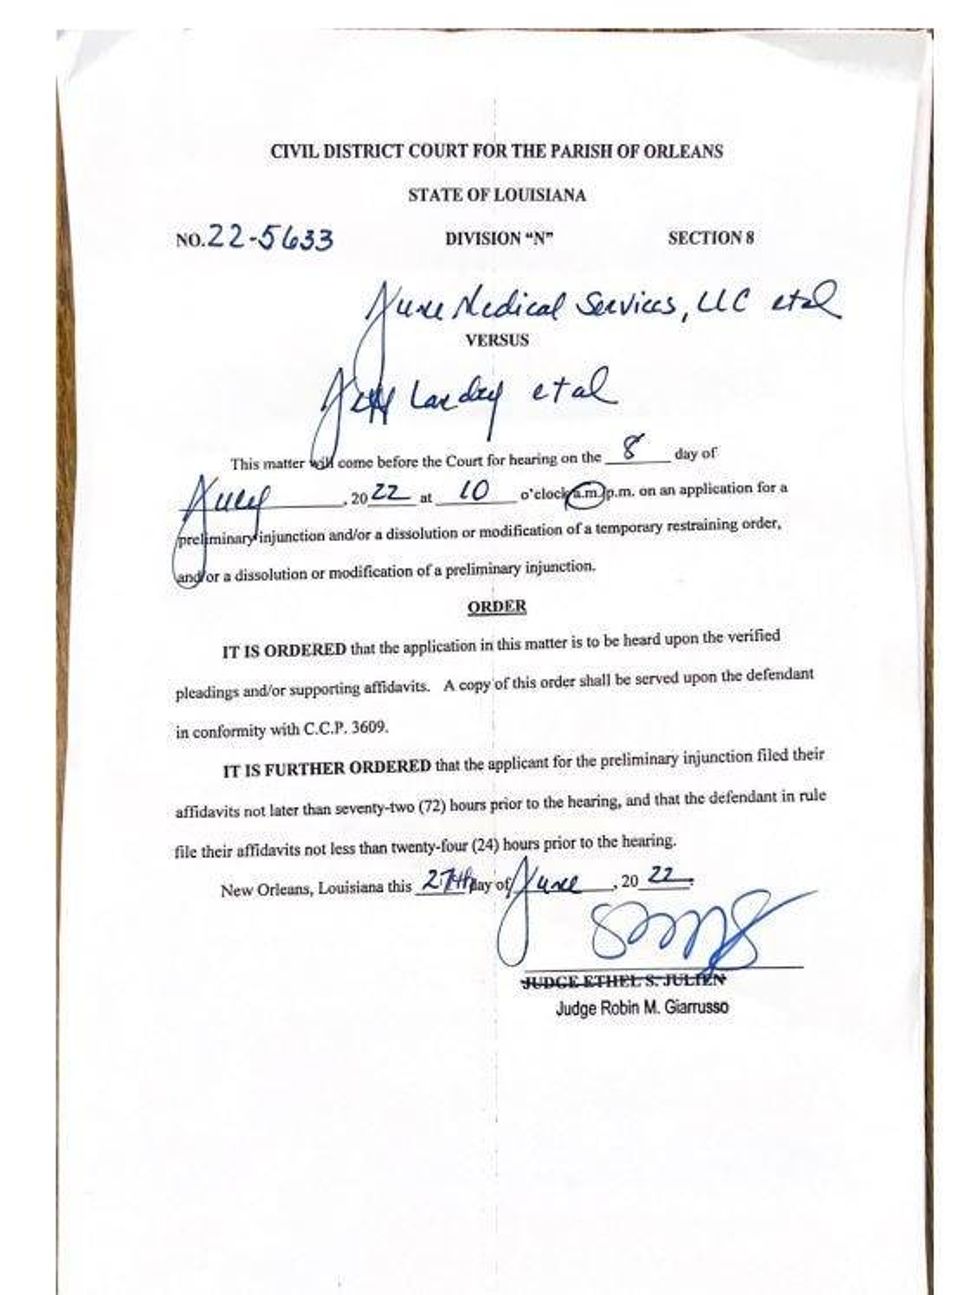 CIVIL DISTRICT COURT FOR THE PARISH OF ORLEANS
STATE OF LOUISIANA
NO. 22-5633 DIVISION "N" SECTION 8
June Medical Services, LLC et al
VERSUS
Jeff Landry et al
This matter will come before the Court for hearing on the 8 day of
July, 2022 at 10 o'clock a.m./p.m. on an application for a
preliminary injunction and/or a dissolution or modification of a temporary restraining order,
and/or a dissolution or modification of a preliminary injunction.
ORDER
IT IS ORDERED that the application in this matter is to be heard upon the verified
pleadings and/or supporting affidavits. A copy of this order shall be served upon the defendant
in conformity with C.C.P. 3609.
IT IS FURTHER ORDERED that the applicant for the preliminary injunction filed their
affidavits not later than seventy-two (72) hours prior to the hearing, and that the defendant in rule
file their affidavits not less than twenty-four (24) hours prior to the hearing.
New Orleans, Louisiana this 27th day of June, 2022.
JUDGE ETHEL S. JULIEN
Judge Robin M. Giarrusso